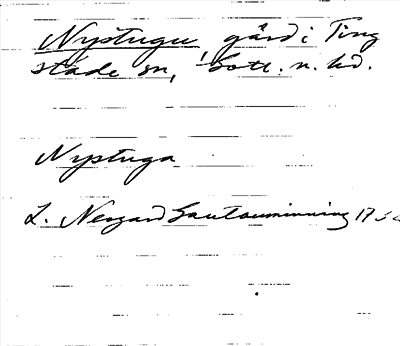 Nystugu, gård i Ting
städe sn, Gotl. n. hd.
Nystuga
L. Neogard Gautauminning 17